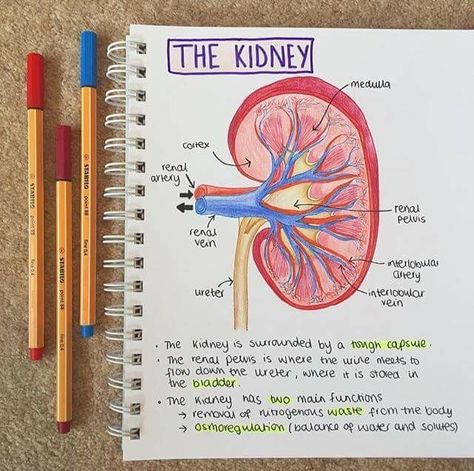 THE KIDNEY
medulla
cortex
renal
artery
renal
vein
renal
pelvis
interlobular
artery
interlobular
vein
ureter
• The Kidney is surrounded by a tough capsule.
• The renal pelvis is where the urine meets to
flow down the ureter, where it is stored in
the bladder.
• The Kidney has two main functions
→ removal of nitrogenous waste from the body
→ osmoregulation (balance of water and solutes)
STABILO point 88 fine 0,4
STABILO point 88 fine 0,4
STABILO point 88 fine 0,4